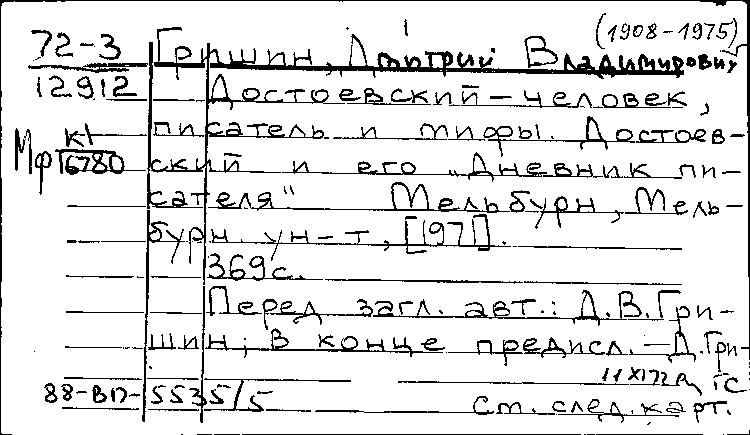 (1908-1975)
72-3 Гришин, Дмитрий Владимирович
12912 Достоевский-человек,
писатель и мифы. Достоев-
Мф К1
16780 ский и его „Дневник пи-
сателя" Мельбурн, Мель-
бурн. ун-т, [1971].
369с.
Перед загл. авт.: Д.В.Гри-
шин; в конце предисл. — Д.Гри-
11 XI 72 ГС
88-ВП-5535/5 См. след. карт.